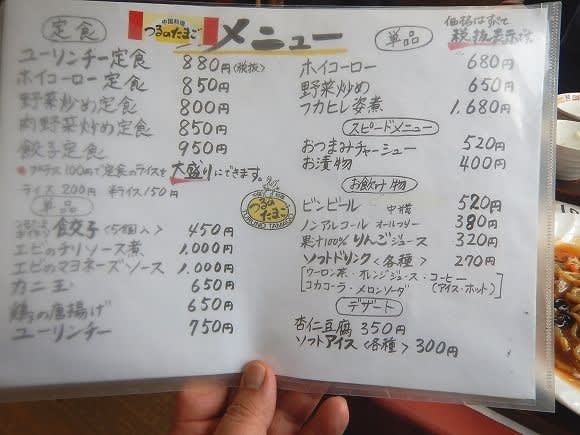 中国料理
つるのたまご
メニュー
定食
ユーリンチー定食 880円(税抜)
ホイコーロー定食 850円
野菜炒め定食 800円
肉野菜炒め定食 850円
餃子定食 950円
プラス100円で定食のライスを大盛りにできます。
ライス 200円 半ライス 150円
単品
餃子(5個入) 450円
エビのチリソース煮 1,000円
エビのマヨネーズソース 1,000円
カニ玉 650円
鶏の唐揚げ 650円
ユーリンチー 750円
つるのたまご
TSURUNO TAMAGO
単品
価格はすべて
税抜表示です
ホイコーロー 680円
野菜炒め 650円
フカヒレ姿煮 1,680円
スピードメニュー
おつまみチャーシュー 520円
お漬物 400円
お飲け物
ビンビール 中瓶 520円
ノンアルコール オールフリー 380円
果汁100%りんごジュース 320円
ソフトドリンク<各種> 270円
ウーロン茶・オレンジジュース・コーヒー
コカコーラ・メロンソーダ (アイス・ホット)
デザート
杏仁豆腐 350円
ソフトアイス<各種> 300円